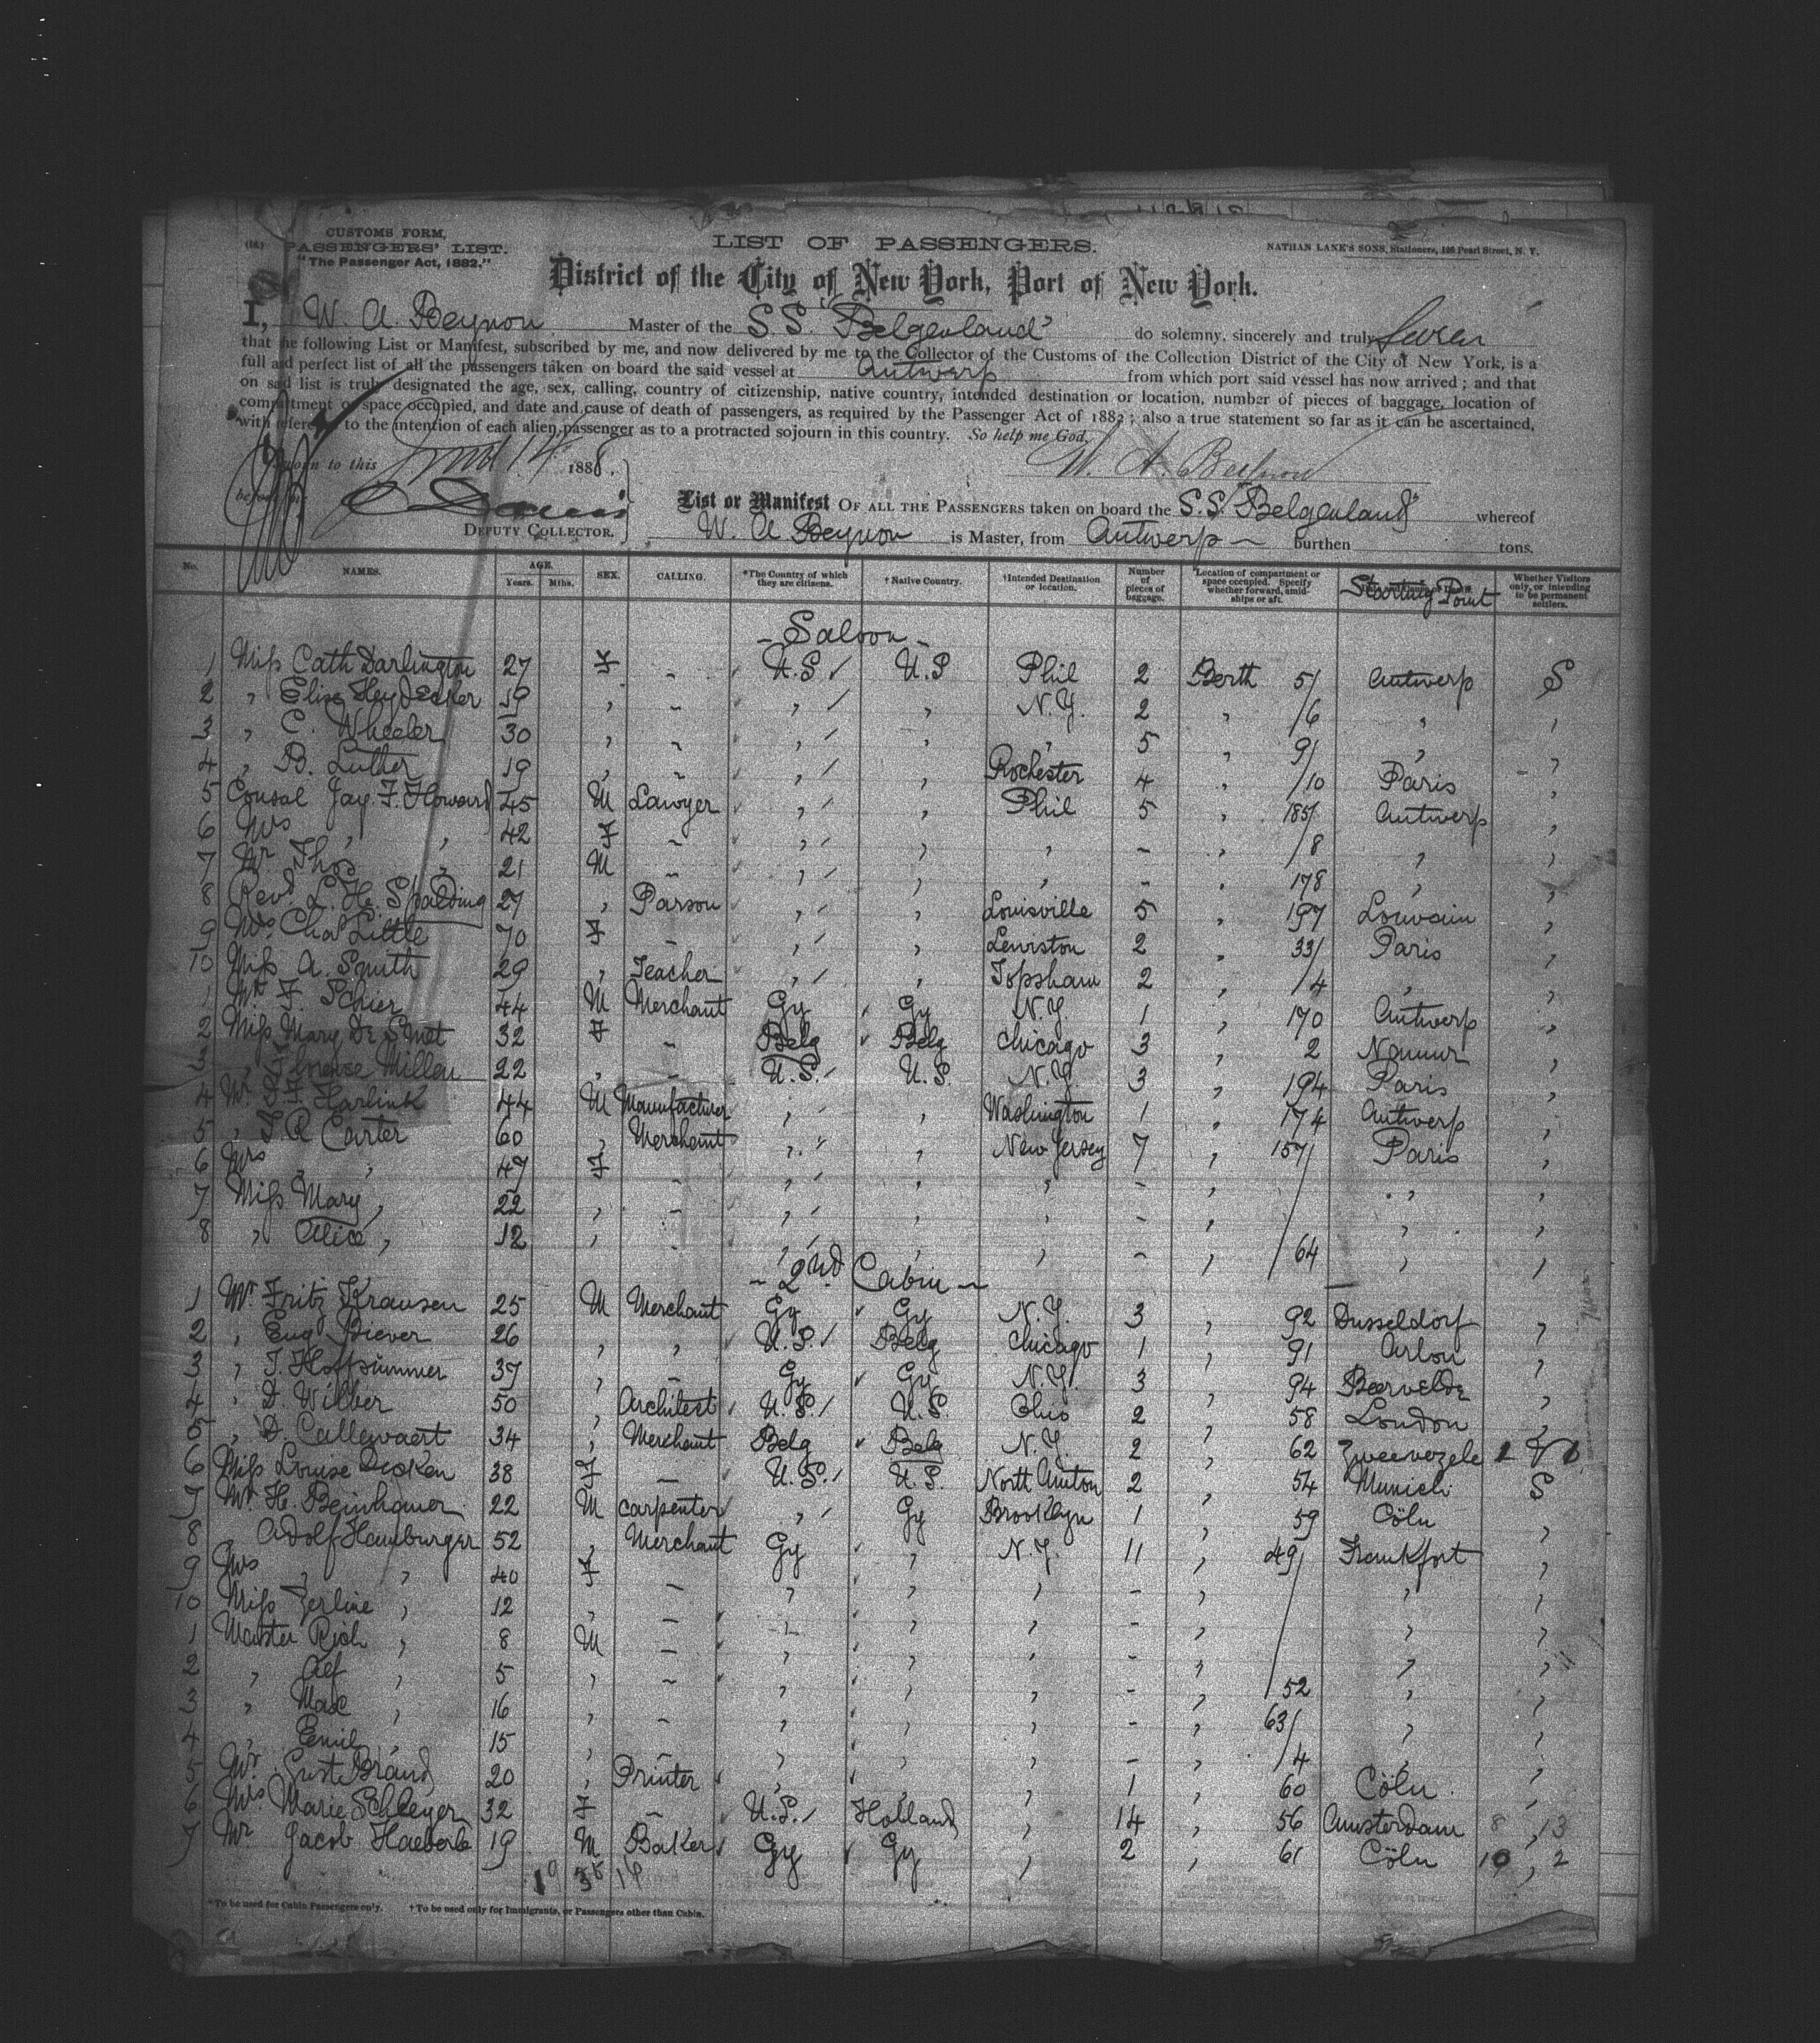 CUSTOMS FORM,
PASSENGERS' LIST.
"The Passenger Act, 1882."
LIST OF PASSENGERS.
NATHAN LANE'S SONS, Stationers, 126 Pearl Street, N. Y.
District of the City of New York, Port of New York.
I, W. A. Beynon Master of the S.S. "Belgenland" do solemny, sincerely and truly Swear
that the following List or Manifest, subscribed by me, and now delivered by me to the Collector of the Customs of the Collection District of the City of New York, is a
full and perfect list of all the passengers taken on board the said vessel at Antwerp from which port said vessel has now arrived; and that
on said list is truly designated the age, sex, calling, country of citizenship, native country, intended destination or location, number of pieces of baggage, location of
compartment or space occupied, and date and cause of death of passengers, as required by the Passenger Act of 1882; also a true statement so far as it can be ascertained,
with reference to the intention of each alien passenger as to a protracted sojourn in this country. So help me God,
Sworn to this 14 1888. W. A. Beynon
before me
DEPUTY COLLECTOR.
List or Manifest OF ALL THE PASSENGERS taken on board the S.S. "Belgenland" whereof
W. A Beynon is Master, from Antwerp burthen tons.
No. NAMES. AGE. Years. Mths. SEX. CALLING. *The Country of which they are citizens. † Native Country. †Intended Destination or location. Number of pieces of baggage. Location of compartment or space occupied. Specify whether forward, amidships or aft. Starting Point Whether Visitors only, or intending to be permanent settlers.
- Saloon -
1 Miss Cath Darlington 27 F - U.S / U.S Phil 2 Berth 5/ Antwerp S
2 " Elise Heydecker 19 " - " / " N.Y. 2 " /6 " "
3 " C. Wheeler 30 " - " / " " 5 " 9/ " "
4 " B. Luther 19 " - " / " Rochester 4 " /10 Paris "
5 Consul Jay. F. Howard 45 M Lawyer " / " Phil 5 " 185/ Antwerp "
6 Mrs " " 42 F - " / " " - " /8 " "
7 Mr Thos " 21 M - " / " " - " 178 " "
8 Revd L. H. Spalding 27 " Parson " / " Louisville 5 " 197 Louvain "
9 Mrs Chas Little 70 F - " / " Lewiston 2 " 33/ Paris "
10 Miss A. Smith 29 " Teacher " / " Topsham 2 " /4 " "
1 Mr F Schier 44 M Merchant Gy Gy N.Y. 1 " 170 Antwerp "
2 Miss Mary De Smet 32 F - Belg Belg Chicago 3 " 2 Namur "
3 " Millen 22 " - U.S. / U.S. N.Y. 3 " 194 Paris "
4 Mr Harlink 44 M Manufacturer " " Washington 1 " 174 Antwerp "
5 " Carter 60 " Merchant " / " New Jersey 7 " 157/ Paris "
6 Mrs " " 47 F - " / " " - " " "
7 Miss Mary " 22 " - " / " " - " " "
8 " Alice " 12 " - " / " " - " /64 " "
- 2nd Cabin -
1 Mr Fritz Krausen 25 M Merchant Gy Gy N.Y. 3 " 92 Dusseldorf "
2 " Eug Biever 26 " " U.S. / Belg Chicago 1 " 91 Arlon "
3 " J. Hoffsümmer 37 " - Gy Gy N.Y. 3 " 94 Beervelde "
4 " D. Wilber 50 " Architect U.S. / U.S. Ohio 2 " 58 London "
5 " D. Callewaert 34 " Merchant Belg Belg N.Y. 2 " 62 Zweevezele
6 Miss Louise Dicken 38 F - U.S. / U.S. North 2 " 54 Munich S
7 Mr H. Beinhauer 22 M carpenter " / Gy Brooklyn 1 " 59 Cöln "
8 Adolf Hamburger 52 " Merchant Gy " N.Y. 11 " 49/ Frankfort "
9 Mrs " " 40 F - " " " - " " "
10 Miss Zerline " 12 " - " " " - " " "
1 Master Rich " 8 M - " " " - " " "
2 " Alf " 5 " - " " " - " /52 " "
3 " Max " 16 " - " " " - " 63/ " "
4 " Emil " 15 " - " " " - " /4 " "
5 Mr Gust Brand 20 " Printer " " " 1 " 60 Cöln "
6 Mrs Marie Schleyer 32 F - U.S. / Holland " 14 " 56 Amsterdam 8 " 13
7 Mr Jacob Haeberle 19 M Baker Gy Gy " 2 " 61 Cöln 10 " 2
*To be used for Cabin Passengers only. †To be used only for Immigrants, or Passengers other than Cabin.